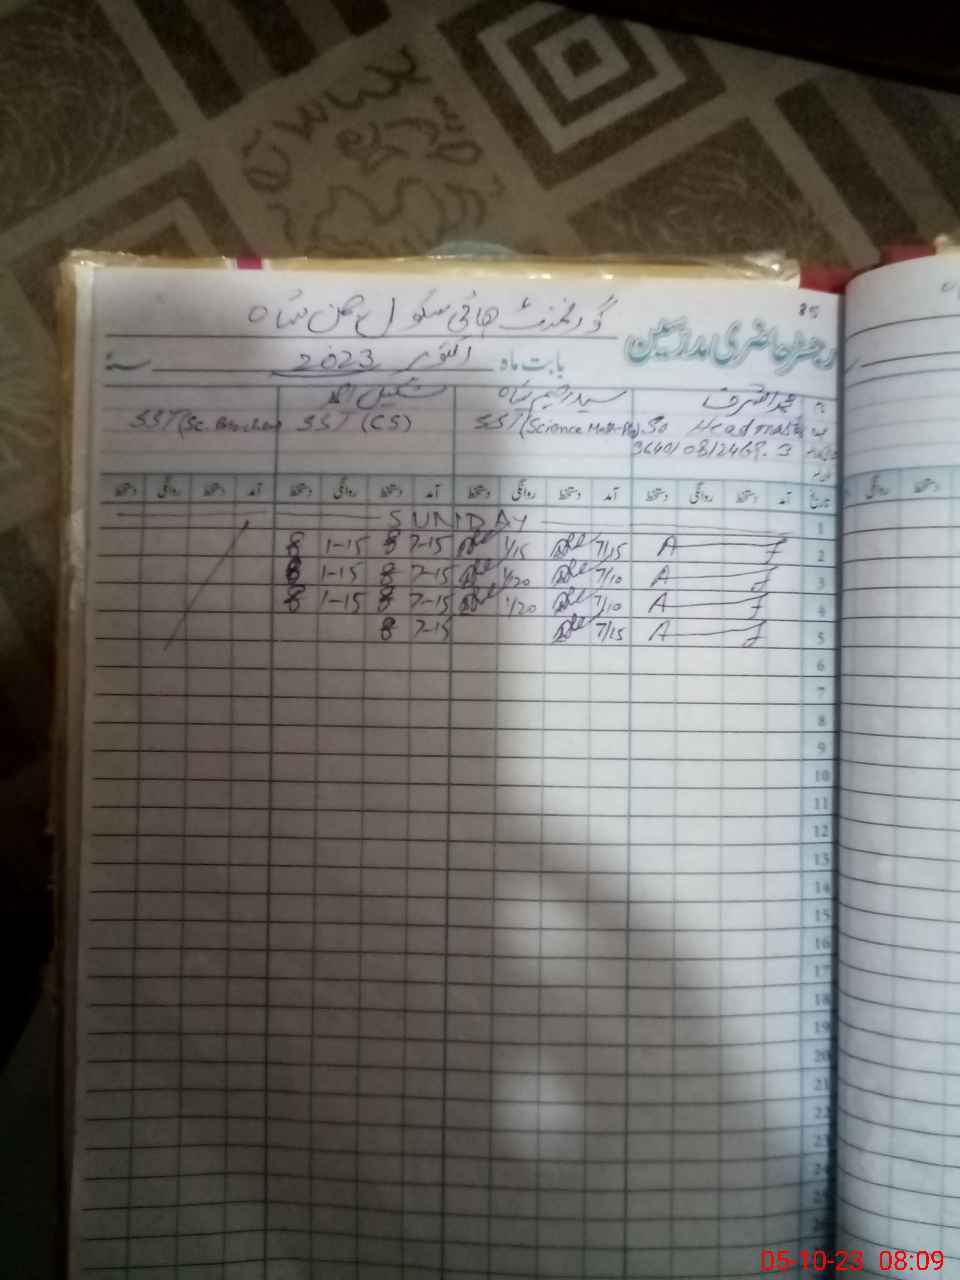 35
گورنمنٹ ھائی سکول چھن شاہ
رجسٹر حاضری مدرسین
بابت ماہ اکتوبر 2023 سنہ
محمد اشرف سید رحیم شاہ شکیل احمد
Headmaster SST (Science Math- SST (CS) SST (Sc.
آمد دستخط روانگی دستخط آمد دستخط روانگی دستخط آمد دستخط روانگی دستخط آمد دستخط روانگی دستخط
1 SUNDAY
2 A 7/15 1/15 7-15 8 1-15 8
3 A 7/10 1/20 7-15 8 1-15 8
4 A 7/10 1/20 7-15 8 1-15 8
5 A 7/15 7-15 8
6
7
8
9
10
11
12
13
14
15
16
17
18
19
20
21
22
23
24
25
05-10-23 08:09